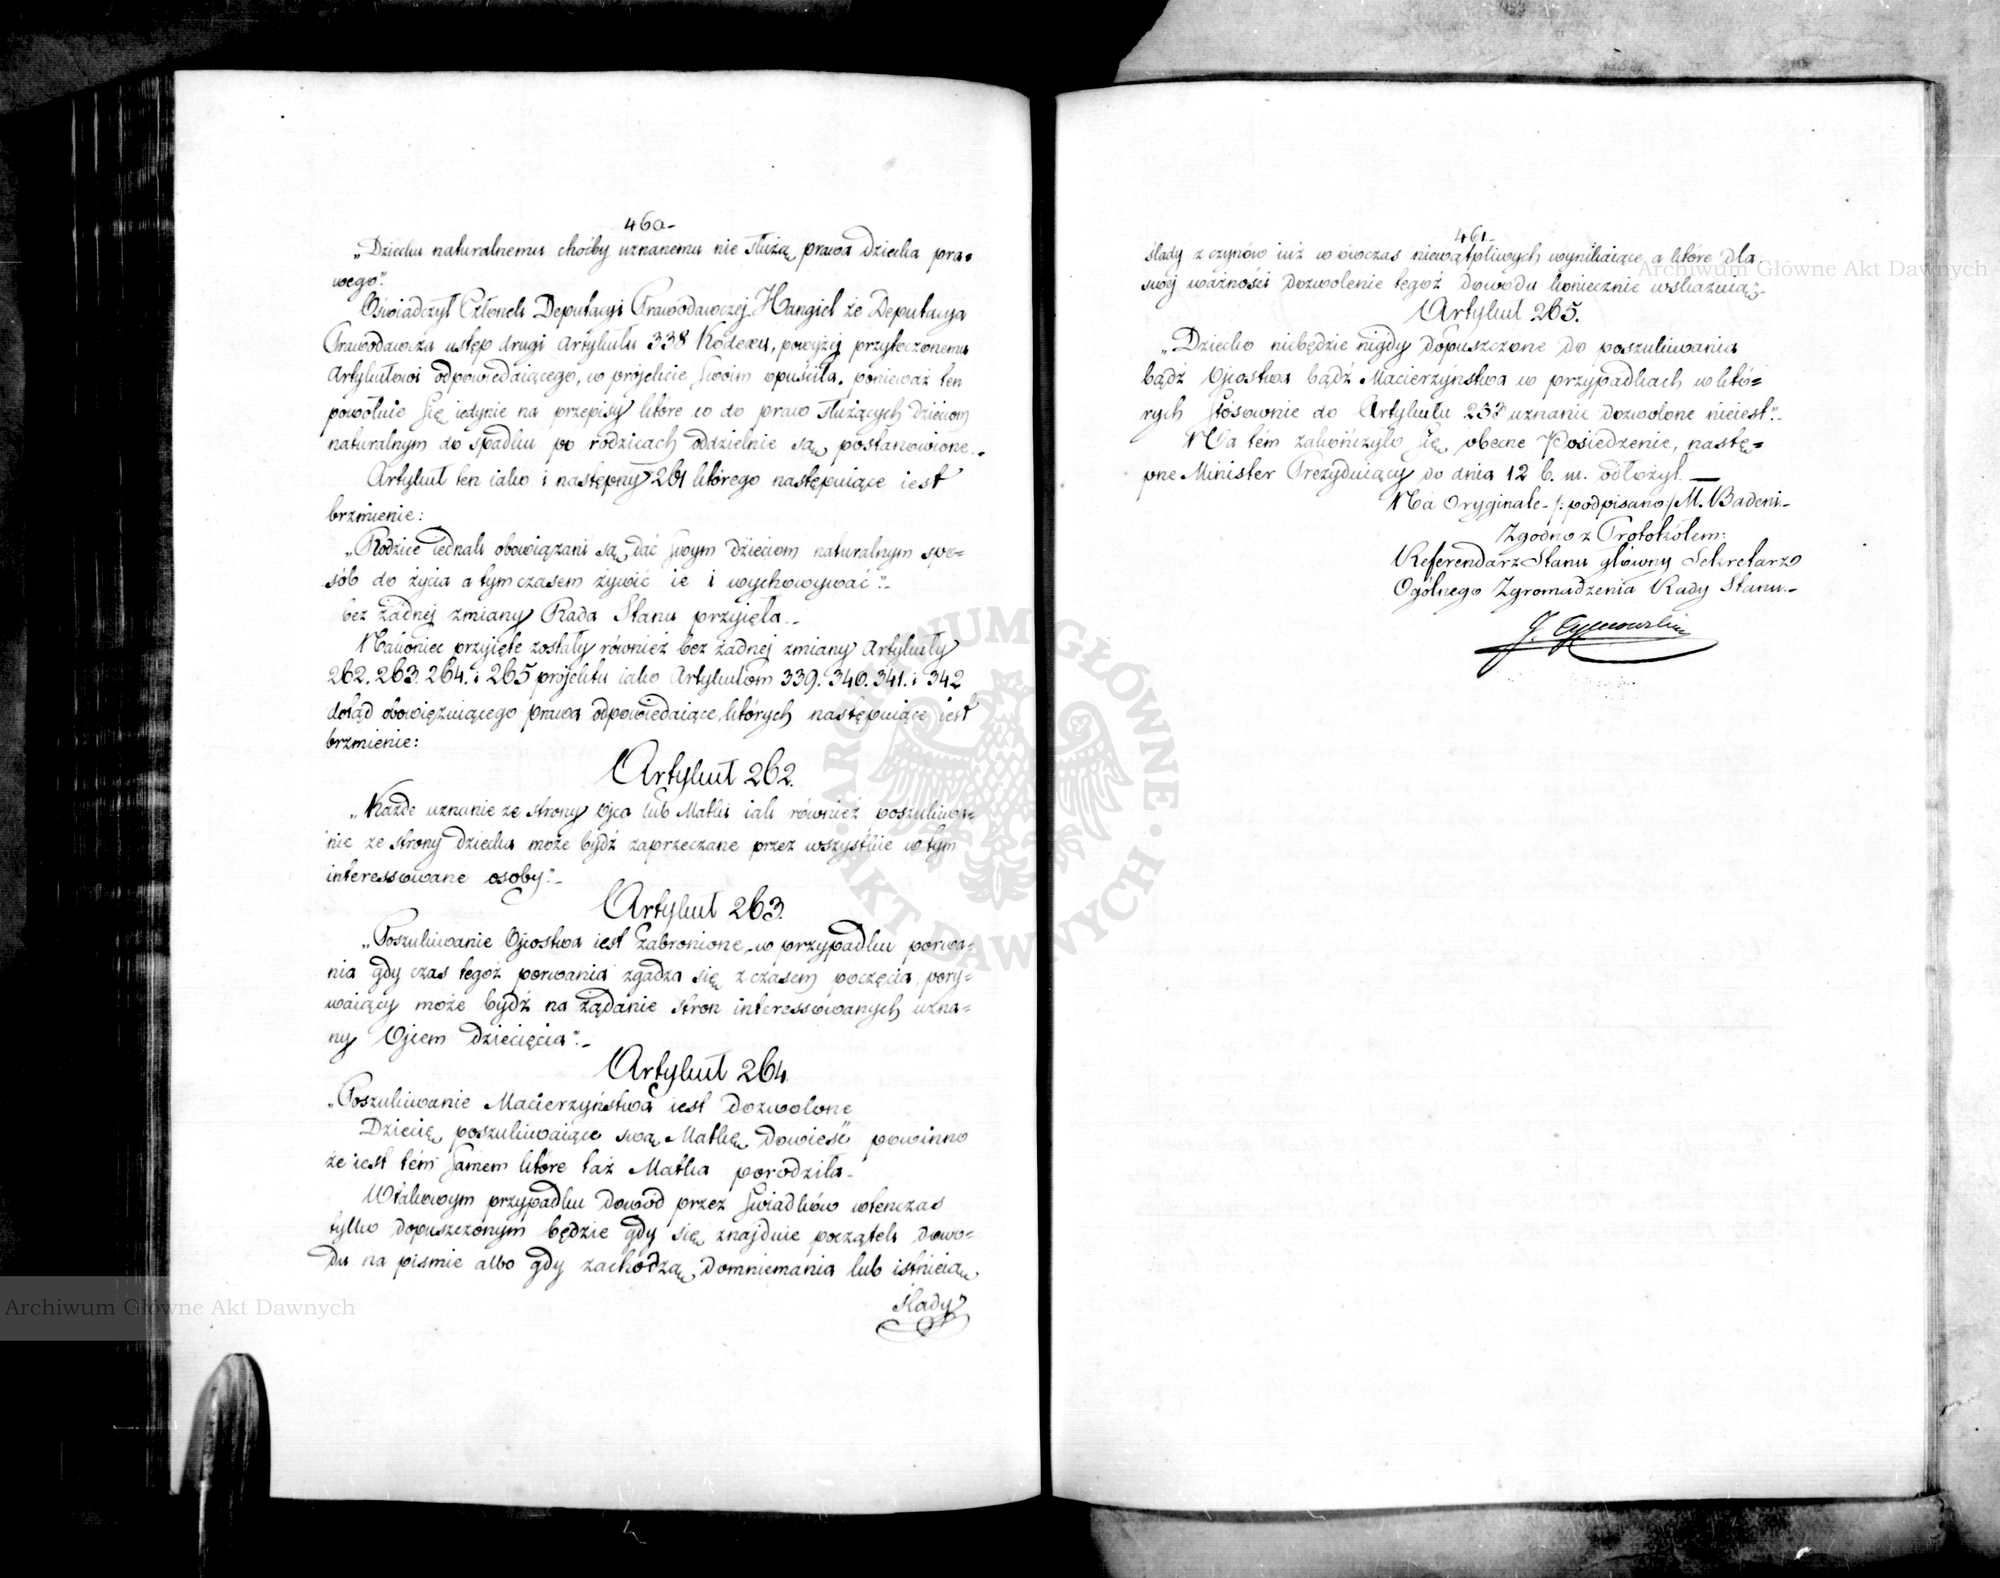 460-
„Dziecku naturalnemu choćby uznanemu nie służą prawa dziecka pra-
wego".
Oświadczył Członek Deputacyi Prawodawczej Hangiel że Deputacya
Prawodawcza ustęp drugi Artykułu 338 Kodexu, powyżej przytoczonemu
Artykułowi odpowiedaiącego, w projekcie swoim opuściła, ponieważ ten
powołuie się iedynie na przepisy które co do praw służących dzieciom
naturalnym do spadku po rodzicach oddzielnie są postanowione.-
Artykuł ten iako i następny 261 którego następuiące iest
brzmienie:
„Rodzice iednak obowiązani są dać swym dzieciom naturalnym spo=
sób do życia a tym czasem żywić ie i wychowywać".-
bez żadnej zmiany Rada Stanu przyięła.-
Nakoniec przyięte zostały również bez żadnej zmiany Artykuły
262. 263. 264. i 265 projektu iako Artykułom 339. 340. 341. i 342
dotąd obowięzuiącego prawa odpowiedaiące, których następuiące iest
brzmienie:
Artykuł 262.
„Każde uznanie ze strony Ojca lub Matki iak również poszukiwa=
nie ze strony dziecka może bydź zaprzeczane przez wszystkie w tym
interessowane osoby".-
Artykuł 263.
„Poszukiwanie Ojcostwa iest zabronione, w przypadku porwa=
nia gdy czas tegoż porwania zgadza się z czasem poczęcia, pory=
waiący może bydź na żądanie stron interessowanych uzna=
ny Ojcem dziecięcia".-
Artykuł 264.
„Poszukiwanie Macierzyństwa iest dozwolone
Dziecię poszukiwaiące swą Matkę dowieść powinno
że iest tém samem które taż Matka porodziła.
W takowym przypadku dowód przez świadków wtenczas
tylko dopuszczonym będzie gdy się znajduie początek dowo=
du na piśmie albo gdy zachodzą domniemania lub istnieią
ślady
461-
ślady z czynów iuż wówczas niewątpliwych wynikaiące, a które dla
swej ważności dozwolenie tegoż dowodu koniecznie wskazuią".-
Artykuł 265.
„Dziecko niebędzie nigdy dopuszczone do poszukiwania
bądź Ojcostwa bądź Macierzyństwa w przypadkach w któ=
rych stósownie do Artykułu 253 uznanie dozwolone nieiest".-
Na tém zakończyło się obecne Posiedzenie, nastę=
pne Minister Prezyduiący do dnia 12 b. m. odłożył.—
Na Oryginale-/: podpisano/M. Badeni.-
Zgodno z Protokółem:
Referendarz Stanu główny Sekretarz
Ogólnego Zgromadzenia Rady Stanu.-
J. Tymowski
Archiwum Główne Akt Dawnych
Archiwum Główne Akt Dawnych
ARCHIWUM GŁÓWNE
AKT DAWNYCH